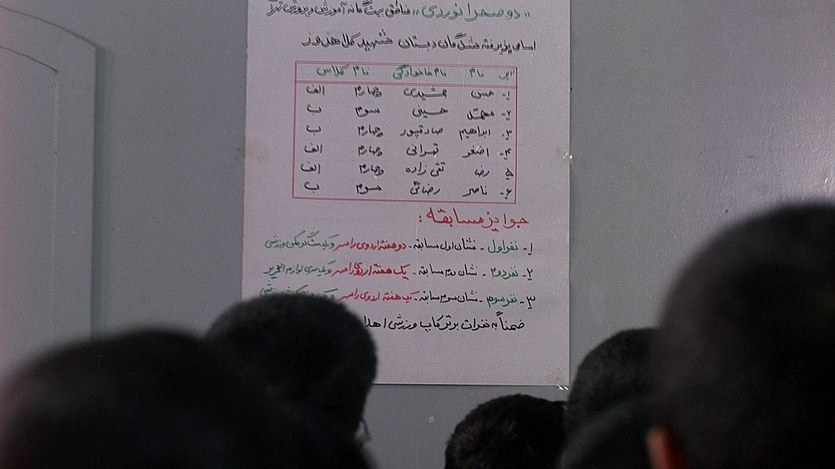 "دو صحرا نوردی" مناطق بیستگانه آموزش و پرورش تهران
اسامی پذیرفته شدگان دبستان شهید کلاهدوز
نام نام خانوادگی نام کلاس
۱- حسن جمشیدی چهارم الف
۲- محمد حسینی سوم ب
۳- ابراهیم صادقپور چهارم ب
۴- اصغر تهرانی چهارم الف
۵ رضا تقی زاده چهارم الف
۶- ناصر رضائی سوم ب
جوایز مسابقه :
۱- نفر اول - نشان اول مسابقه - دو هفته اردوی رامسر و یکدست گرمکن ورزشی
۲- نفر دوم - نشان دوم مسابقه - یک هفته اردوی رامسر و یکسری لوازم التحریر
۳- نفر سوم - نشان سوم مسابقه - یک هفته اردوی رامسر و کفش ورزشی
ضمناً به نفرات برتر کاپ ورزشی اهدا